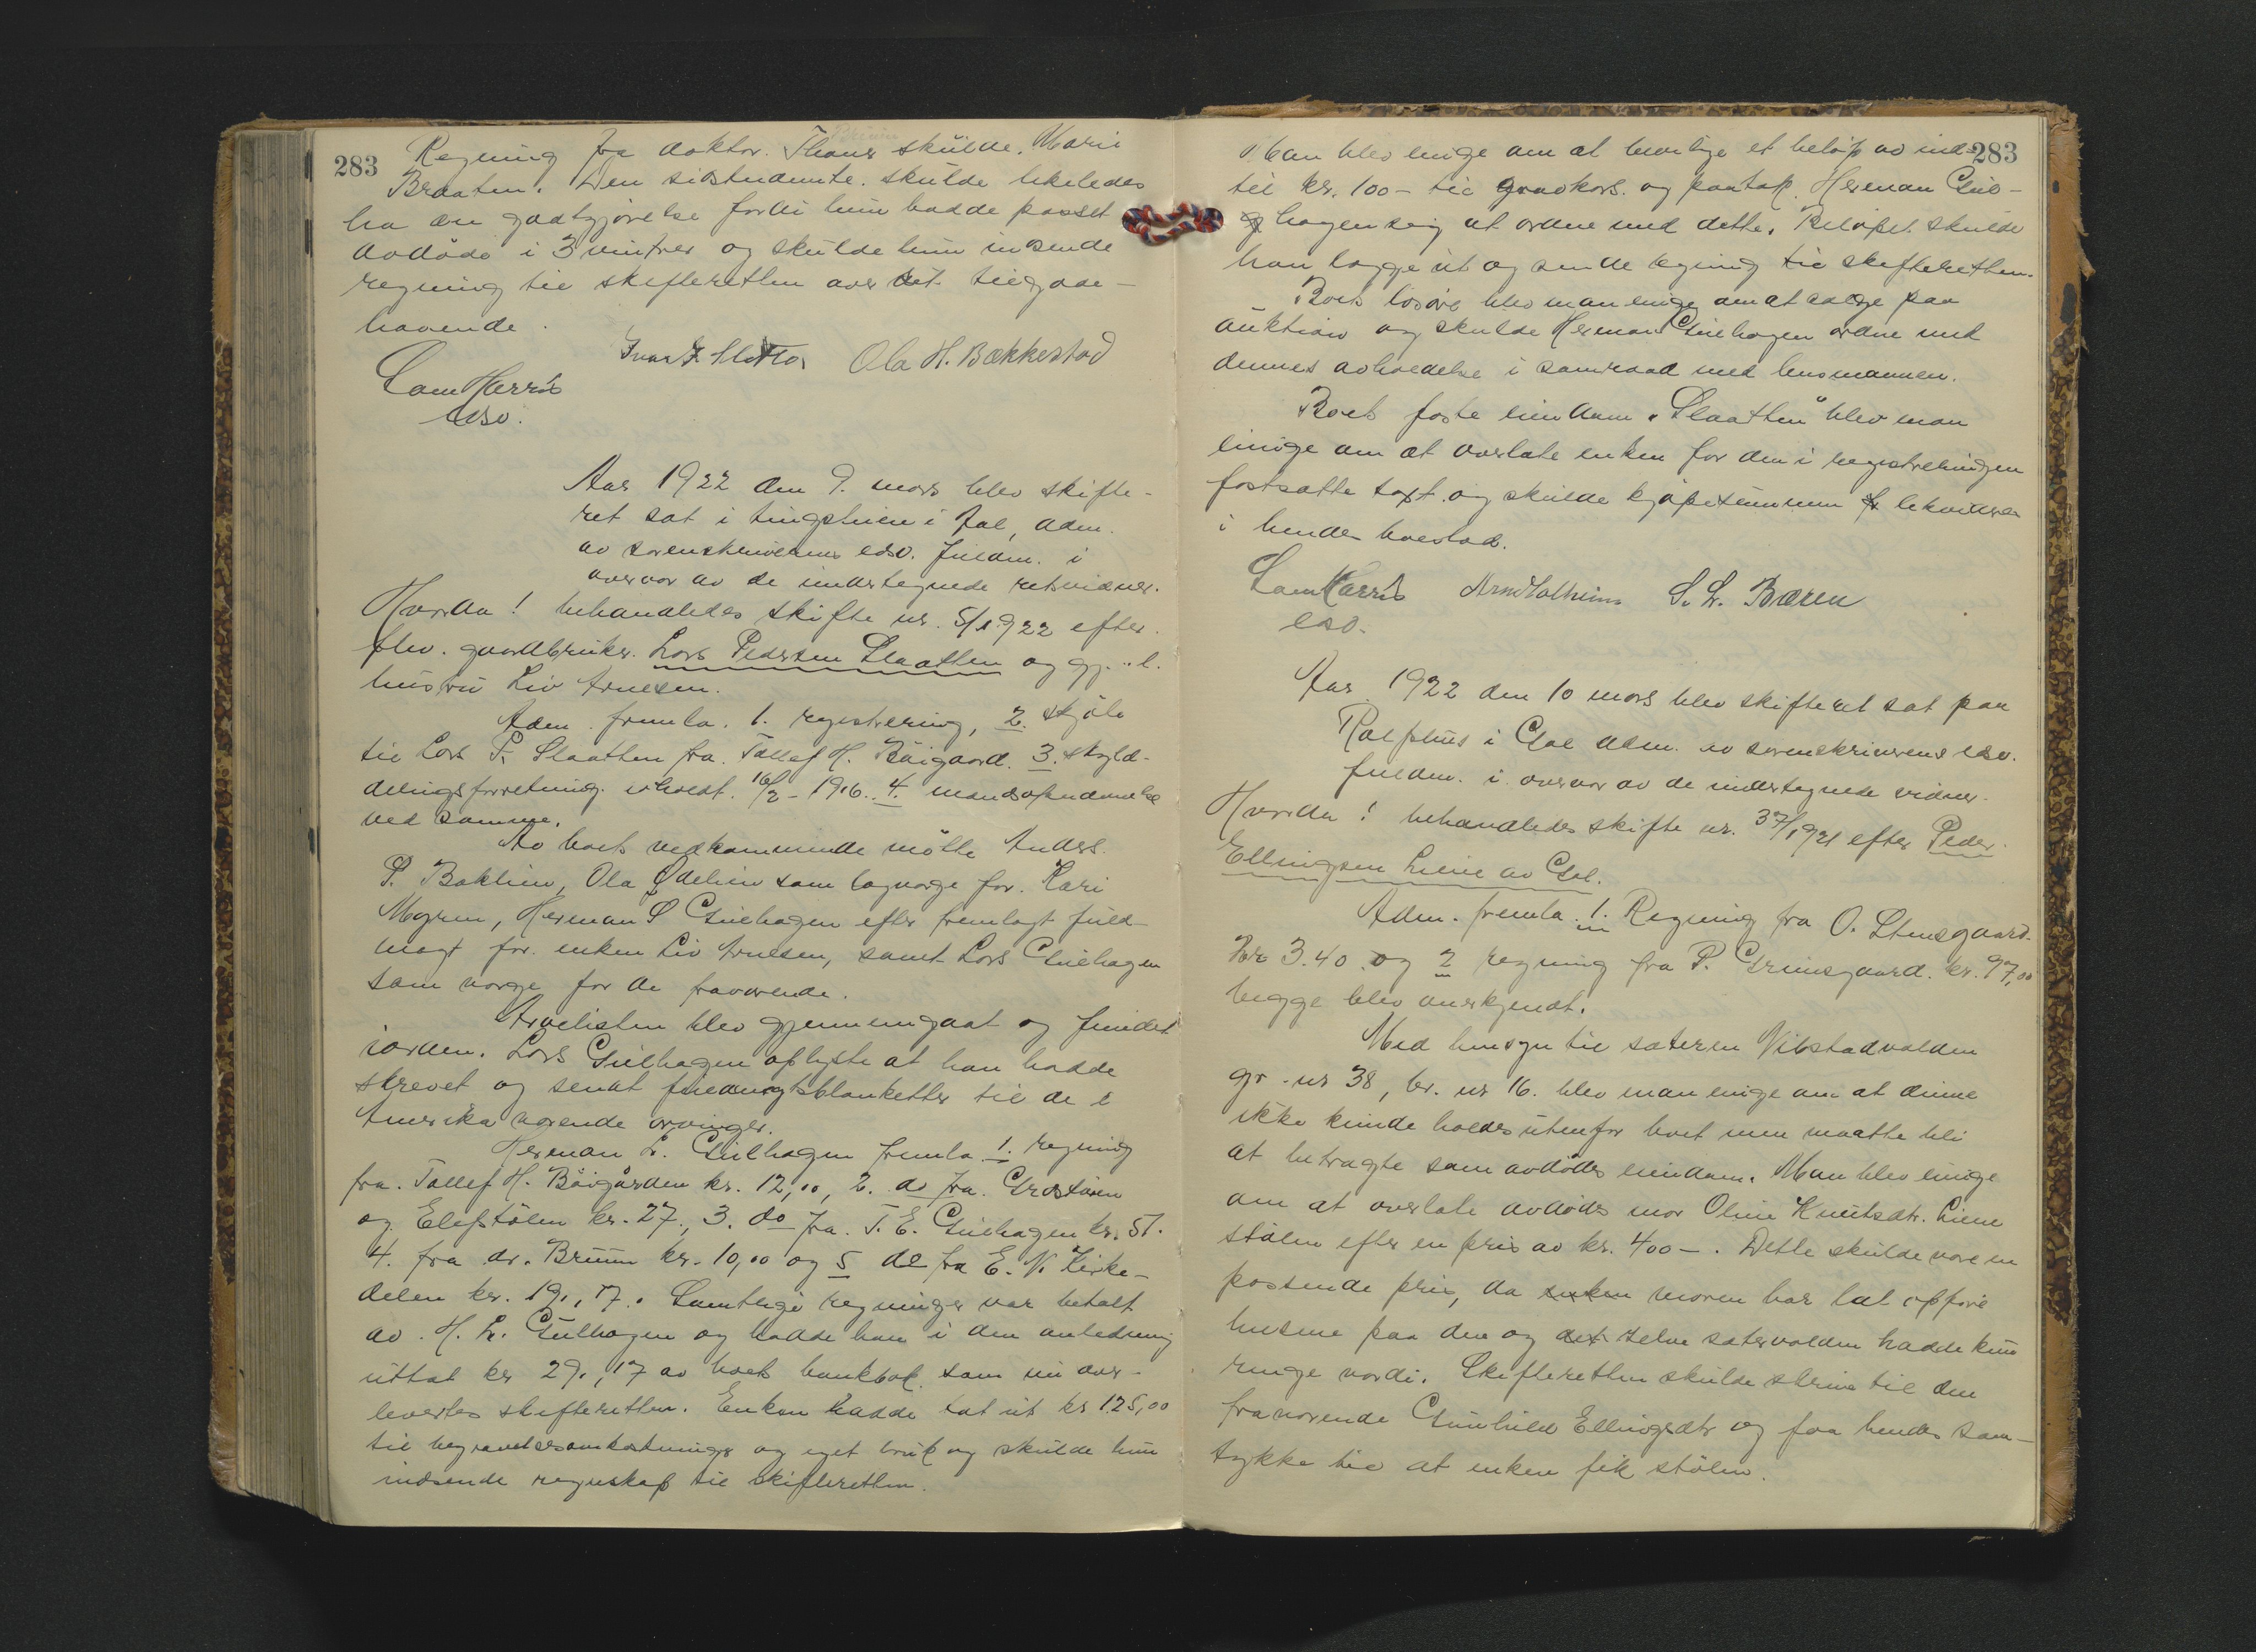 283
Regning fra doktor Thaus skulde Marie
Braaten. Den sistnævnte skulde likeledes
ha en godtgjørelse fordi hun hadde passet
avdøde i 3 vintrer og skulde hun insende
regning til skifteretten over sit tilgode-
havende.
Ola H. Bækkestad
Sam Harris
edsv.
Aar 1922 den 9. mars blev skifte-
ret sat i tingstuen i Aal, adm.
av sorenskriverens edsv. fuldm. i
overvær av de undertegnede retsvidner.
Hvorda! behandledes skifte nr. 5/1922 efter
blev. gaardbruker Lars Pedersen Slaatten og gj. l.
hustru Liv Arnesen.
Adm. fremla. 1. registrering, 2. skjøte
til Lars P. Slaatten fra Tollef H. Böigaard. 3. skyld-
delingsforretning avholdt 16/2 - 1916. 4. mandsopnævnelse
ved samme.
Av boets vedkommende mötte Anders
P. Baklien, Ola Ødelien som lagverge for Kari
Myren, Herman L Gulhagen efter fremlagt fuld-
magt for enken Liv Arnesen, samt Lars Gulhagen
som verge for de fraværende.
Arvelisten blev gjennemgaat og fundet
iorden. Lars Gulhagen oplyste at han hadde
skrevet og sendt fuldmagtsblanketter til de i
Amerika værende arvinger.
Herman L. Gulhagen fremla 1. regning
fra Tollef H. Böigården kr. 12,00, 2. do fra
og Elefstölen kr. 27., 3. do fra T. E. Gulhagen kr. 51.
4. fra dr. Bruun kr. 10,00 og 5 do fra E. N. Kirke-
delen kr. 19,17. Samtlige regninger var betalt
av H. L. Gulhagen og hadde han i den anledning
uttat kr 29,17 av boets bankbok som nu over-
levertes skifteretten. Enken hadde tat ut kr 125,00
til begravelsesomkostninger og eget bruk og skulde hun
indsende regnskap til skifteretten.
283
Man blev enige om at bevilge et beløp av ind-
til kr. 100 - til gravkors og paatok Herman Gul-
hagen sig at ordne med dette. Beløpet skulde
han lægge ut og sende regning til skifteretten.
Boets løsøre blev man enige om at sælge paa
auktion og skulde Herman Gulhagen ordne med
dennes avholdelse i samraad med lensmannen.
Boets faste eiendom "Slaatten" blev man
enige om at overlate enken for den i registreringen
fastsatte takst og skulde kjøpesummen likvideres
i hendes boeslod.
Sam Harris Arne Hallheim S. L. Bæren
edsv.
Aar 1922 den 10 mars blev skifteret sat paa
Rolfshus i Gol adm. av sorenskriverens edsv.
fuldm. i overvær av de undertegnede vidner.
Hvorda! behandledes skifte nr. 37/1921 efter Peder
Ellingsen Liene av Gol.
Adm. fremla 1. Regning fra O. Stensgaard
kr 3.40 og 2 regning fra P. Grimsgaard kr. 97,00
begge blev anerkjendt.
Med hensyn til sæteren Vibstadvolden
gr. nr 38, br. nr 16. blev man enige om at denne
ikke kunde holdes utenfor boet men maatte bli
at betragte som avdødes eiendom. Man blev enige
om at overlate avdødes mor Oline Knutsdtr. Liene
stölen efter en pris av kr. 400 -. Dette skulde være en
passende pris, da enken moren har lat opföre
husene paa den og det selve sætervolden hadde kun
ringe værdi. Skifteretten skulde skrive til den
fraværende Gunhild Ellingsdtr og faa hendes sam-
tykke til at enken fik stölen.